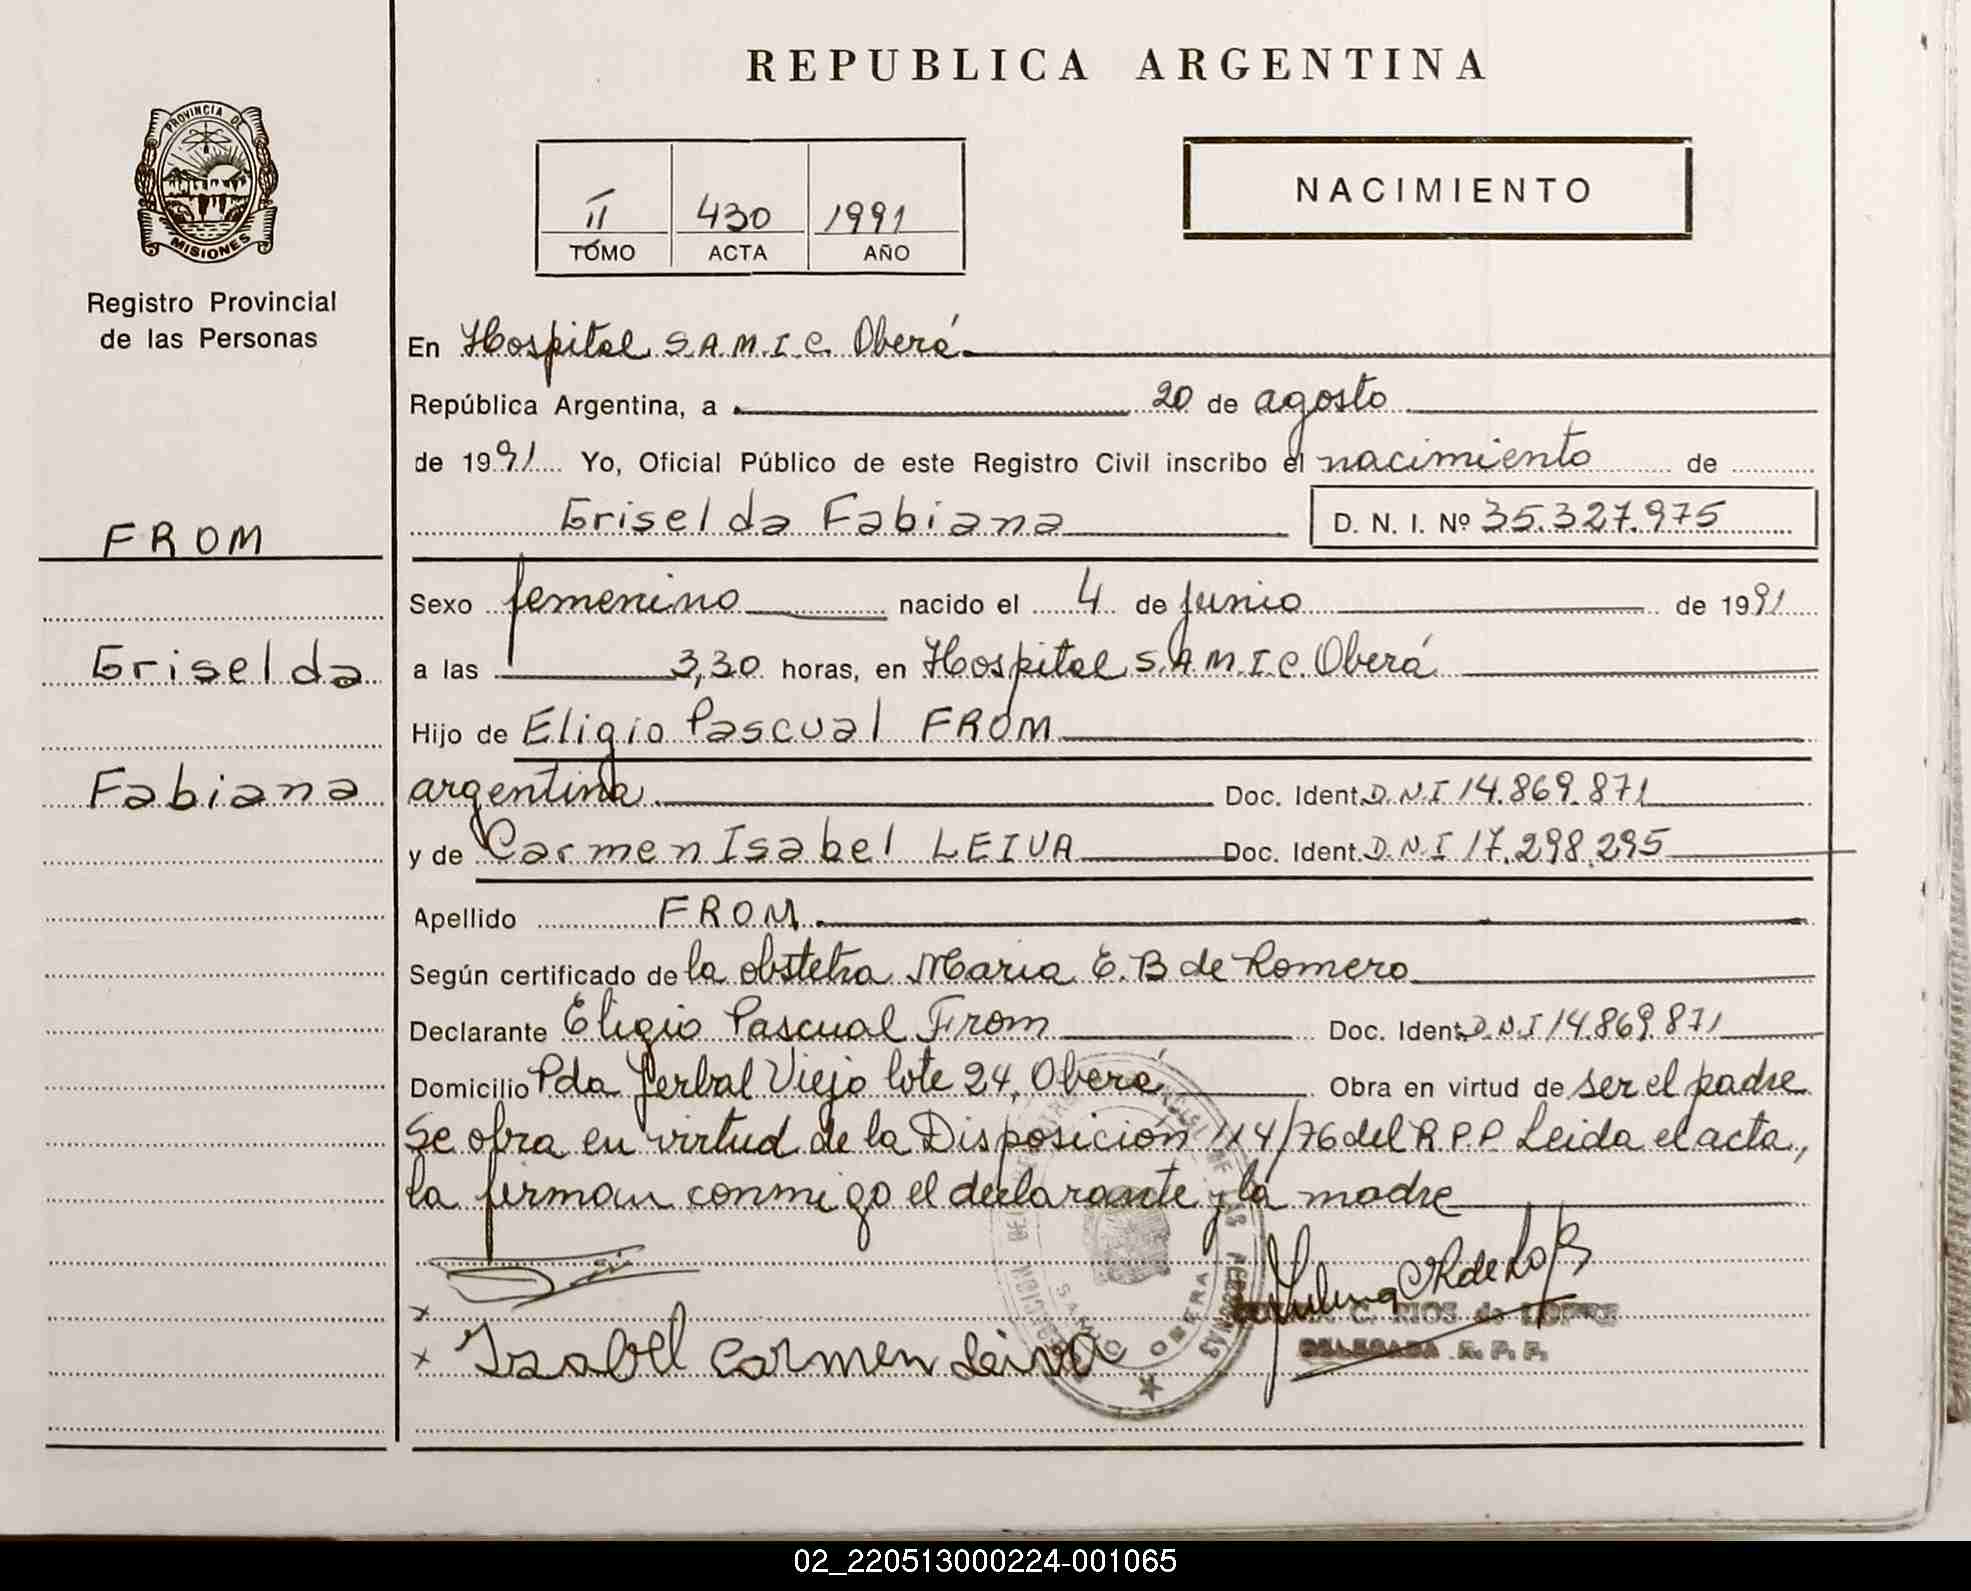 REPUBLICA ARGENTINA
PROVINCIA DE
MISIONES
Registro Provincial
de las Personas
II 430 1991
TOMO ACTA AÑO
NACIMIENTO
En Hospital S.A.M.I.C. Oberá
República Argentina, a 20 de agosto
de 1991 Yo, Oficial Público de este Registro Civil inscribo el nacimiento de
Griselda Fabiana D. N. I. Nº 35.327.975
FROM
Sexo femenino nacido el 4 de junio de 1991
Griselda
a las 3,30 horas, en Hospital S.A.M.I.C. Oberá
Hijo de Eligio Pascual FROM
Fabiana
argentina Doc. Ident. D.N.I 14.869.871
y de Carmen Isabel LEIVA Doc. Ident. D.N.I 17.298.295
Apellido FROM
Según certificado de la obstetra Maria E. B de Romero
Declarante Eligio Pascual From Doc. Ident. D.N.I 14.869.871
Domicilio Pda Yerbal Viejo lote 24, Oberá Obra en virtud de ser el padre
Se obra en virtud de la Disposición 114/76 del R.P.P. Leida el acta,
la firman conmigo el declarante y la madre
x
C. RIOS de LOPEZ
DELEGADA R. P. P.
x Isabel Carmen Leiva
SAMIC OBERA
02_220513000224-001065